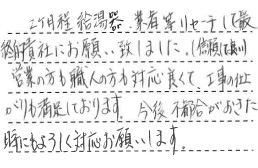 2ヶ月程給湯器 業者等リサーチして最
終的貴社にお願い致しました。(信頼して良い)
営業の方も職人の方も対応良くて、工事の仕上
がりも満足しております。今後不都合がおきた
時にもよろしく対応お願いします。